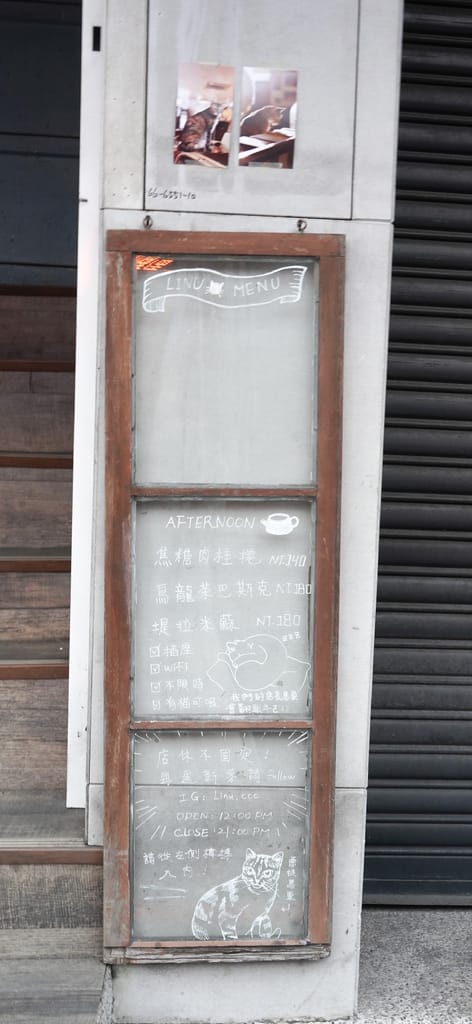 66-6551-10
LINU MENU
AFTERNOON
焦糖肉桂捲 NT.140
烏龍茶巴斯克 NT.180
提拉米蘇 NT.180
☑ 插座
☑ WIFI
☑ 不限時
☑ 有貓可吸
我們的店長是最
店休不固定！
Follow
IG: Linu.ccc
OPEN: 12:00 PM
CLOSE: 21:00 PM
請從左側樓梯
入內！
zzz